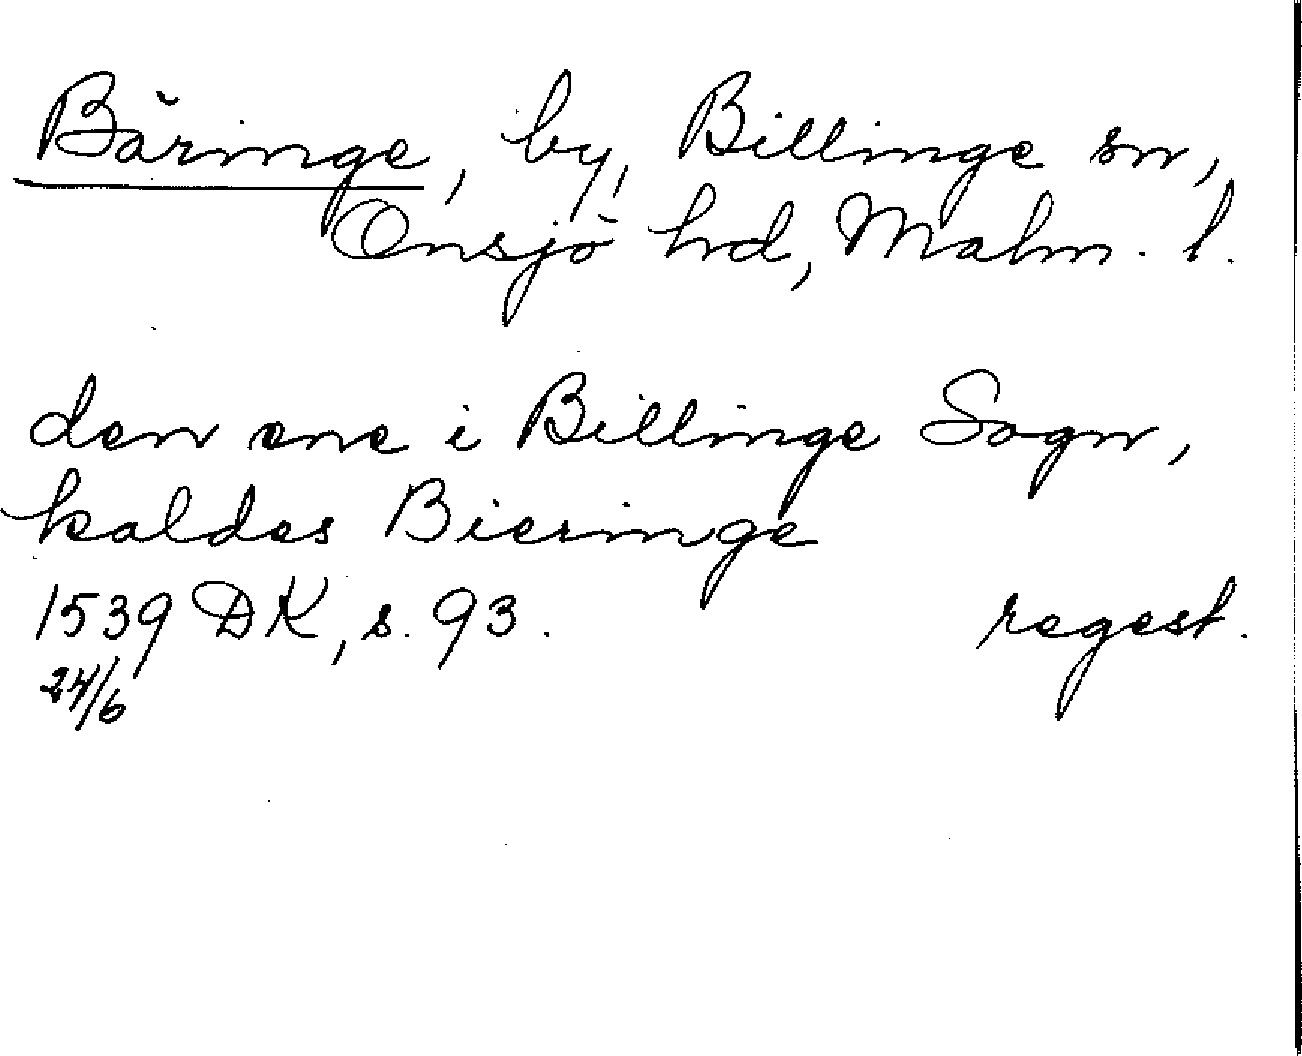 Bäringe, by, Billinge sn,
Onsjö hd, Malm. l.
den ene i Billinge Sogn,
kaldes Bieringe
1539 DK, s. 93. regest.
24/6